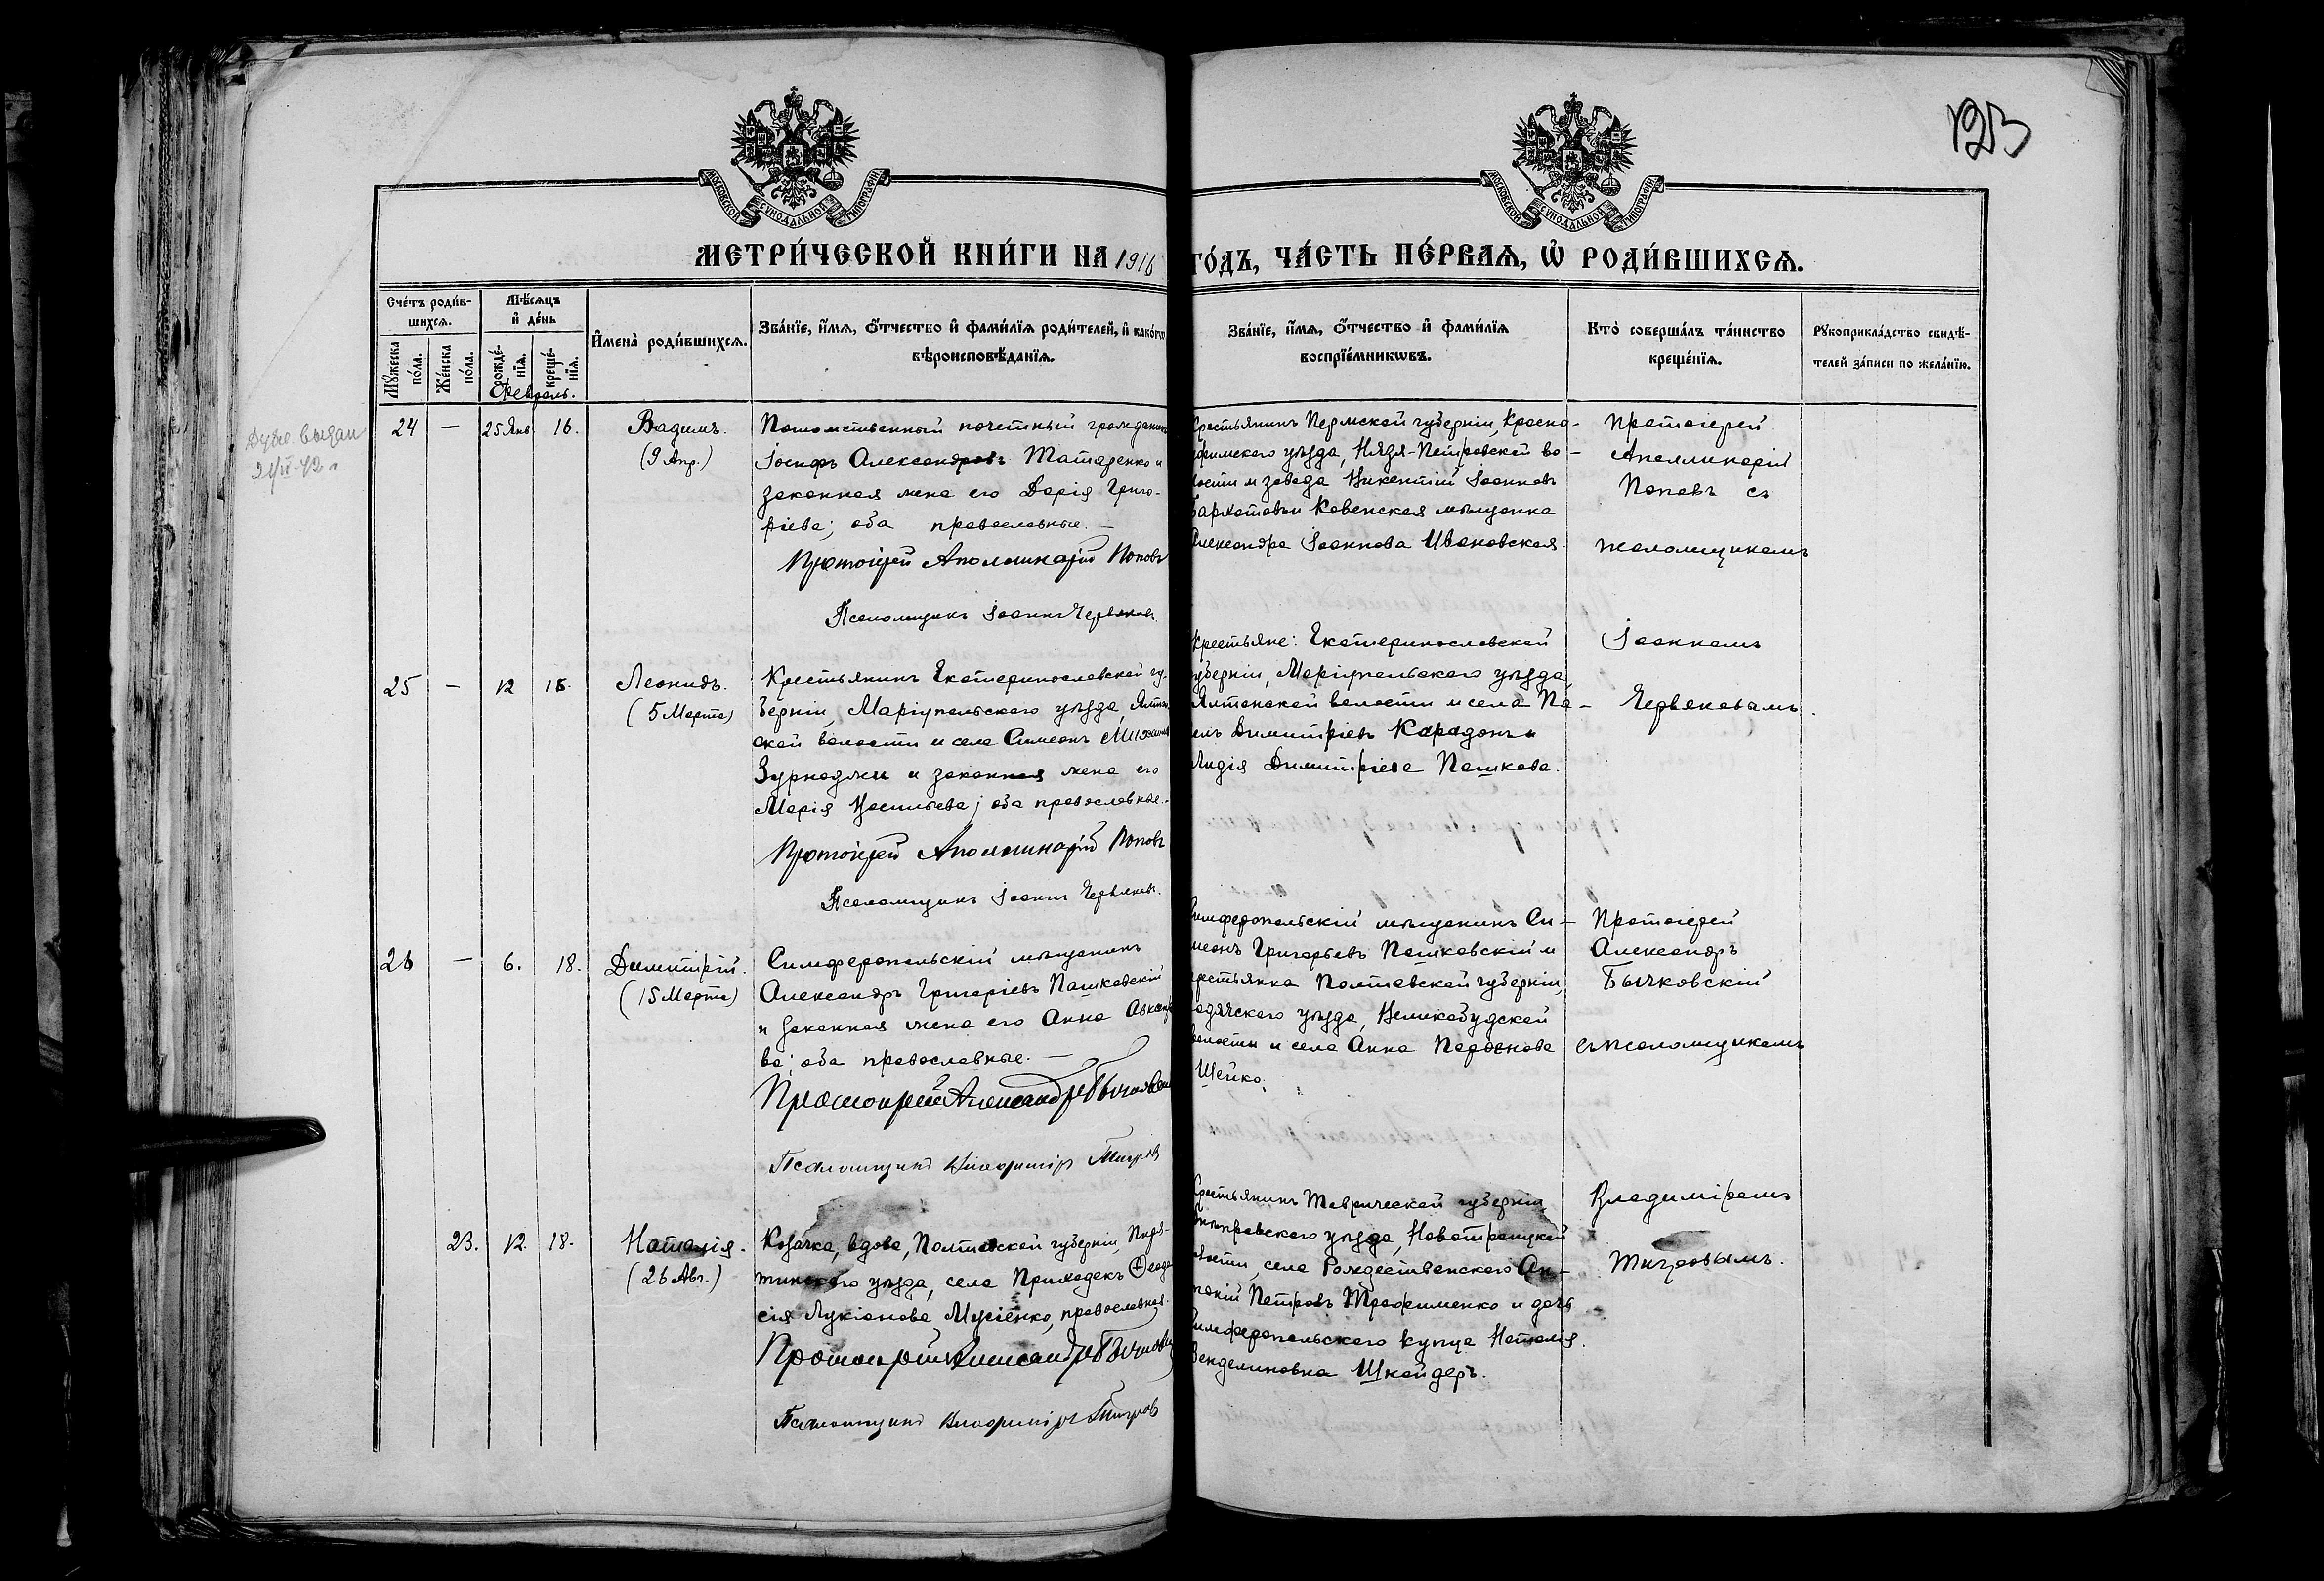 123
МОСКОВСКОЙ СУНОДАЛЬНОЙ ТИПОГРАФІИ
МОСКОВСКОЙ СУНОДАЛЬНОЙ ТИПОГРАФІИ
МЕТРИ́ЧЕСКОЙ КНИ́ГИ НА 1916 ГО́ДЪ, ЧА́СТЬ ПЕ́РВАЯ, Ѡ РОДИ́ВШИХСЯ.
Сче́тъ роди́в-
шихся.
Мꙋ́жеска по́ла.
Же́нска по́ла.
Мѣ́сяцъ
и҆ де́нь
рожде́-
нїя.
креще́-
нїя.
Февраль.
И҆мена̀ роди́вшихся.
Зва́нїе, и҆́мя, ѻ҆́тчество и҆ фами́лїя роди́телей, и҆ како́гѡ
вѣроисповѣ́данїя.
Зва́нїе, и҆́мя, ѻ҆́тчество и҆ фами́лїя
воспрїе́мникѡвъ.
Кто̀ соверша́лъ та́инство
креще́нїя.
Рꙋкоприкла́дство свидѣ́-
телей за́писи по жела́нїю.
выдан
24 — 25 Янв. 16.
Вадимъ.
(9 Апр.)
Потомственный почетный гражданинъ
Іосифъ Александровъ Татаренко и
законная жена его Дарія Григо-
ріева; оба православные. —
Протоіерей Аполлинарій Поповъ
Псаломщикъ Іоаннъ Червяковъ.
Крестьянинъ Пермской губерніи, Красно-
уфимскаго уѣзда, Нязя-Петровской во-
лости и завода Викентій Іоанновъ
Бархатовъ и Ковенская мѣщанка
Александра Іоаннова Ивановская.
Протоіерей
Аполлинарій
Поповъ съ
псаломщикомъ
Іоанномъ
Червяковымъ.
25 — 12 16.
Леонидъ.
(5 Марта)
Крестьянинъ Екатеринославской гу-
берніи, Маріупольскаго уѣзда, Ялтин-
ской волости и села Симеонъ
Зурнаджи и законная жена его
Марія Васильева; оба православные. —
Протоіерей Аполлинарій Поповъ
Псаломщикъ Іоаннъ Червяковъ.
Крестьяне: Екатеринославской
губерніи, Маріупольскаго уѣзда,
Ялтинской волости и села Па-
велъ Димитріевъ Карадонъ и
Лидія Димитріева Пашкова.
26 — 6. 18.
Димитрій.
(15 Марта)
Симферопольскій мѣщанинъ
Александръ Григоріевъ Пашковскій
и законная жена его Анна
ва; оба православные. —
Протоіерей Александръ Бычковскій
Псаломщикъ Владиміръ Тигровъ
Симферопольскій мѣщанинъ Си-
меонъ Григорьевъ Пашковскій и
крестьянка Полтавской губерніи,
Гадячскаго уѣзда, Великобудской
волости и села Анна
Шейко.
Протоіерей
Александръ
Бычковскій
съ псаломщикомъ
Владиміромъ
Тигровымъ.
23. 12. 18.
Наталія.
(26 Авг.)
Козачка, вдова, Полтавской губерніи, Пиря-
тинскаго уѣзда, села Приходекъ Ѳеодо-
сія Лукіанова Мусіенко, православная.
Протоіерей Александръ Бычковскій
Псаломщикъ Владиміръ Тигровъ
Крестьянинъ Таврической губерніи,
Днѣпровскаго уѣзда, Новотроицкой
волости, села Рождественскаго Ан-
тоній Петровъ Трофименко и дочь
Симферопольскаго купца Наталія
Венделиновна Шнайдеръ.